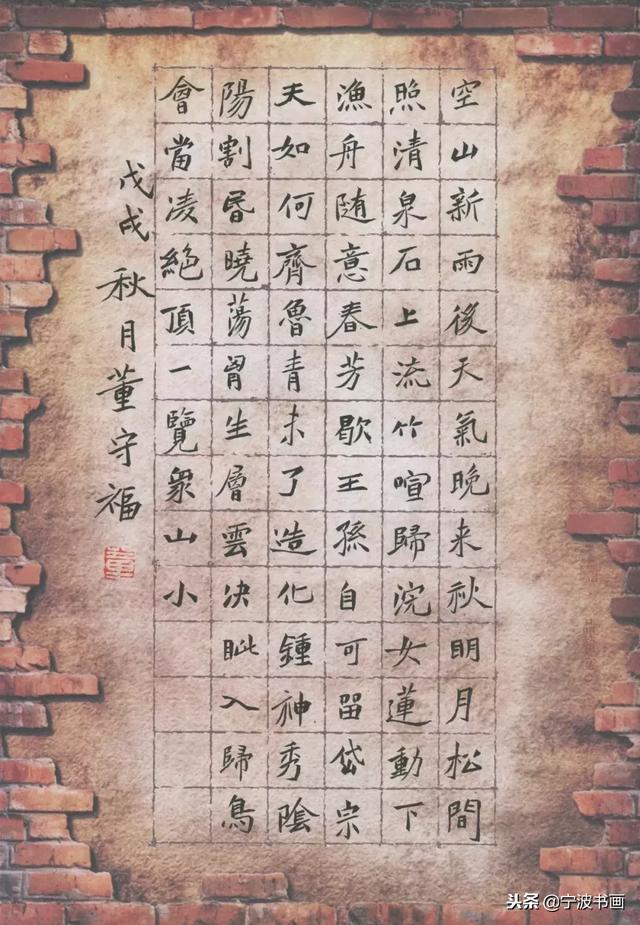 空山新雨後天氣晚来秋明月松間
照清泉石上流竹喧歸浣女蓮動下
漁舟随意春芳歇王孫自可留岱宗
夫如何齊魯青未了造化鍾神秀陰
陽割昏曉蕩胷生層雲决眦入歸鳥
會當凌絶頂一覽衆山小
戊戌秋月董守福
董
头条@宁波书画